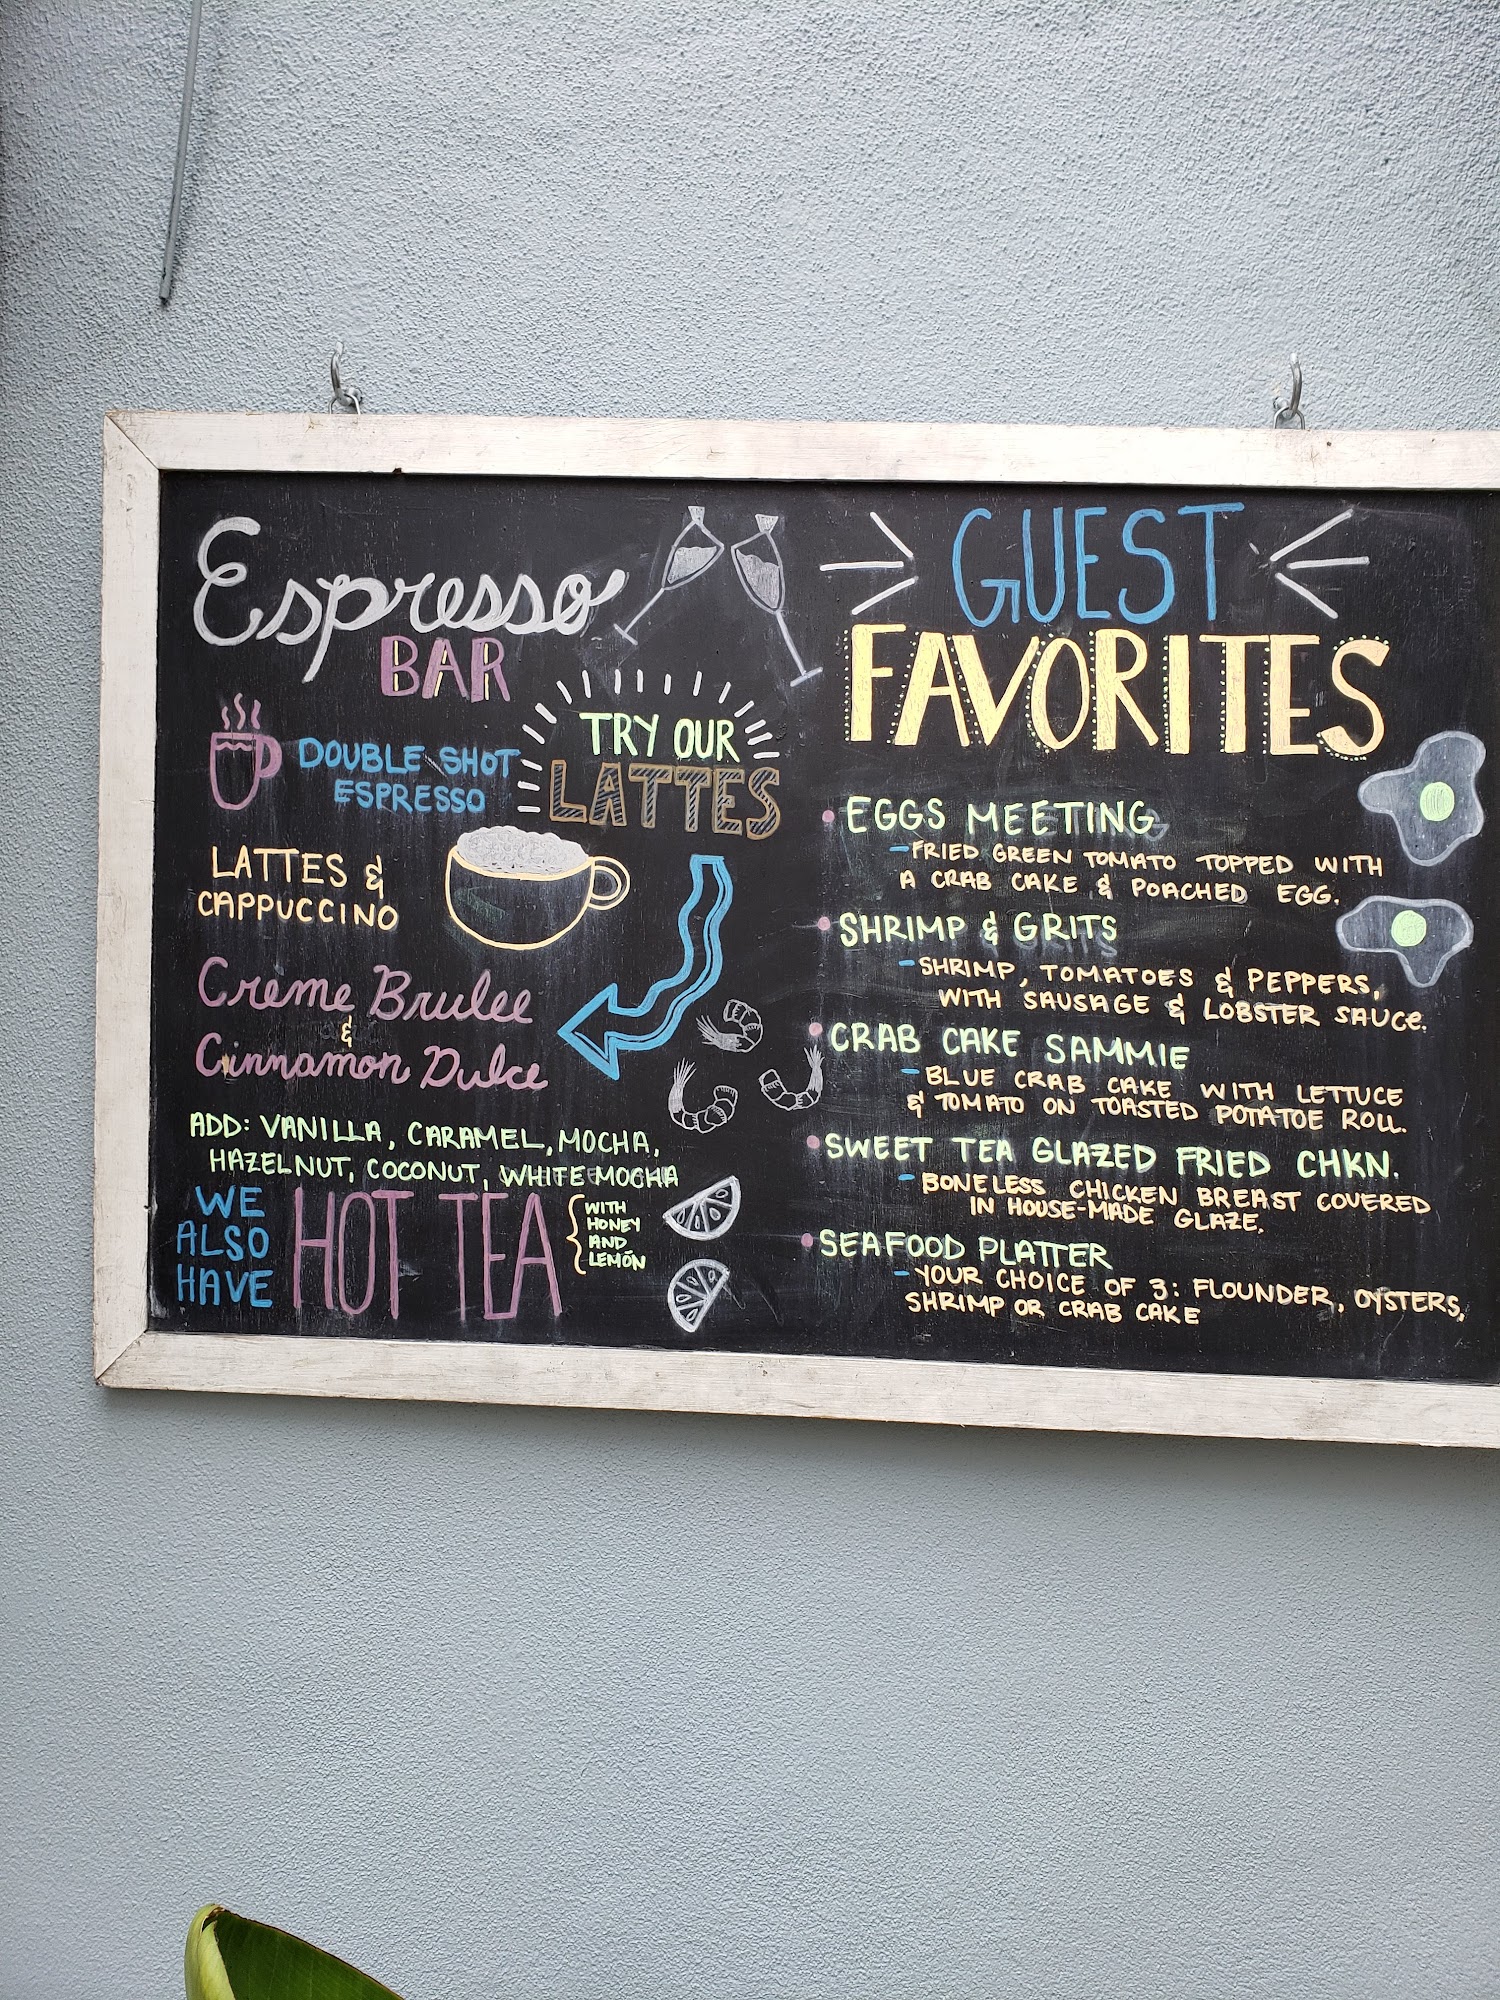 Espresso
BAR
DOUBLE SHOT
ESPRESSO
TRY OUR
LATTES
LATTES &
CAPPUCCINO
Crème Brulee
&
Cinnamon Dulce
ADD: VANILLA, CARAMEL, MOCHA,
HAZELNUT, COCONUT, WHITE MOCHA
WE
ALSO
HAVE
HOT TEA
WITH
HONEY
AND
LEMON
GUEST
FAVORITES
EGGS MEETING
-FRIED GREEN TOMATO TOPPED WITH
A CRAB CAKE & POACHED EGG.
SHRIMP & GRITS
-SHRIMP, TOMATOES & PEPPERS,
WITH SAUSAGE & LOBSTER SAUCE.
CRAB CAKE SAMMIE
-BLUE CRAB CAKE WITH LETTUCE
& TOMATO ON TOASTED POTATOE ROLL.
SWEET TEA GLAZED FRIED CHKN.
-BONELESS CHICKEN BREAST COVERED
IN HOUSE-MADE GLAZE.
SEAFOOD PLATTER
-YOUR CHOICE OF 3: FLOUNDER, OYSTERS,
SHRIMP OR CRAB CAKE